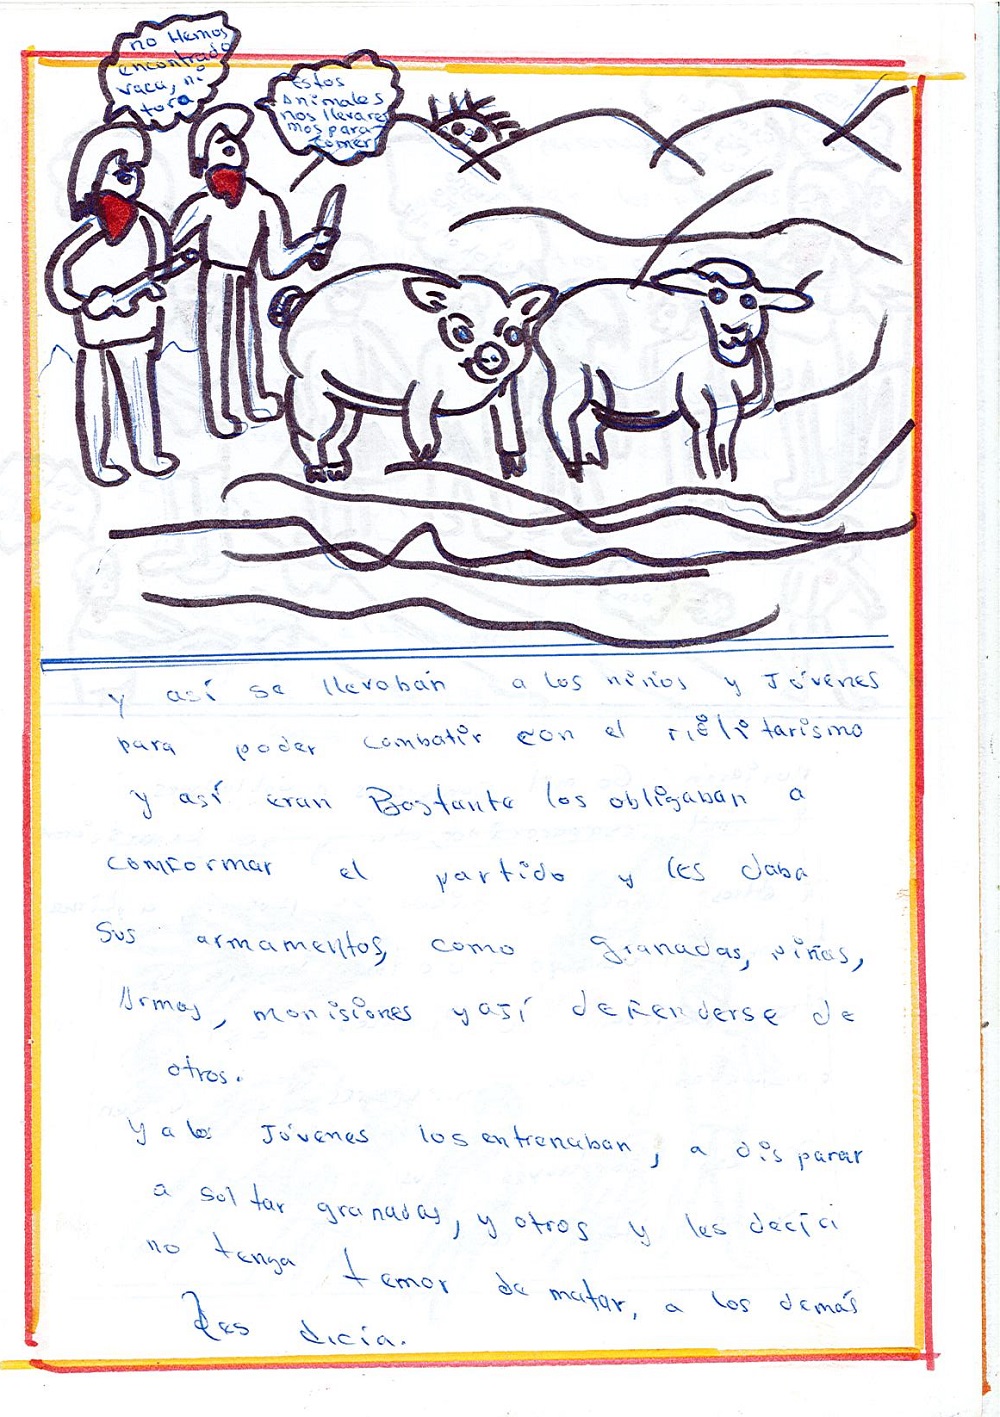 no Hemos
encontrado
vaca, no
tora
Estos
Animales
nos llevare
mos para
comer
y así se llevaban a los niños y Jóvenes
para poder combatir con el militarismo
y así eran Bastante los obligaban a
comformar el partido y les daba
sus armamentos, como granadas, piñas,
Armas, monisiones y así defenderse de
otros.
y a los Jóvenes los entrenaban, a disparar
a soltar granadas, y otros y les decía
no tenga temor de matar, a los demás
Les dicía.